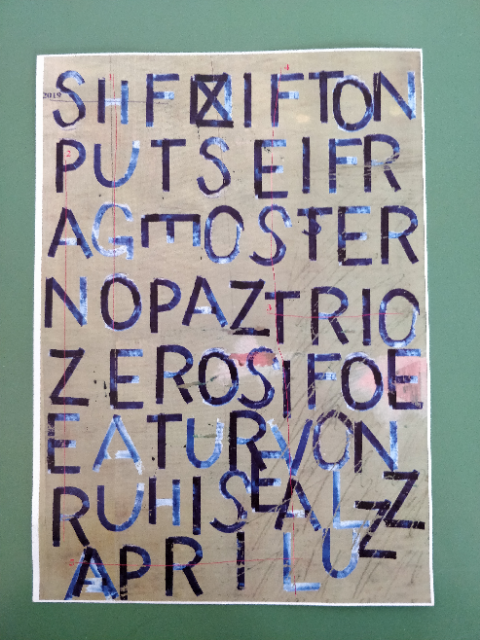 2019
SHF☒IFTON
PUTSEIFR
AGEOSTER
NOPAZTRIO
ZEROSIFOE
EATURVON
RUHISEALZZ
APRILU